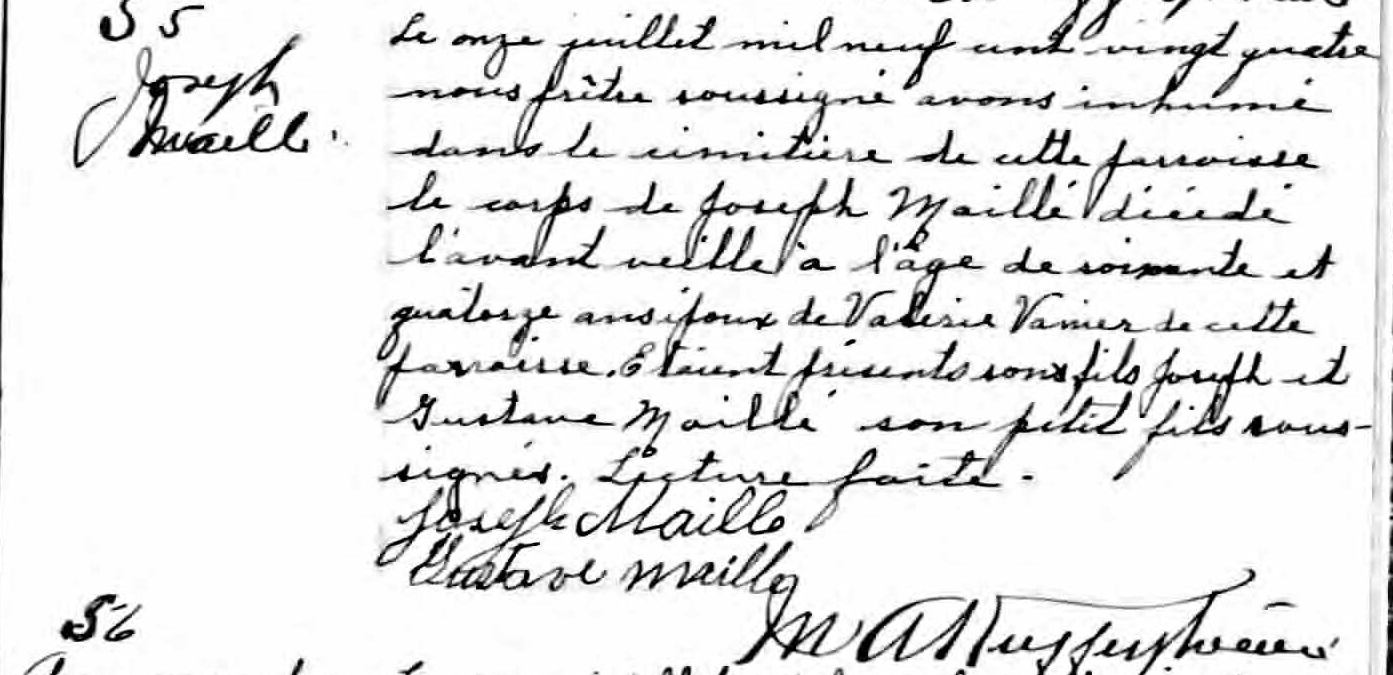 55
Joseph
Maillé
Le onze juillet mil neuf cent vingt quatre
nous prêtre soussigné avons inhumé
dans le cimitière de cette parroisse
le corps de Joseph Maillé décédé
l'avant veille à l'âge de soixante et
quatorze ans époux de Valérie Vanier de cette
parroisse. Etaient présents son fils Joseph et
Gustave Maillé son petit fils sous-
signés. Lecture faite.
Joseph Maillé
Gustave Maillé
M A
56